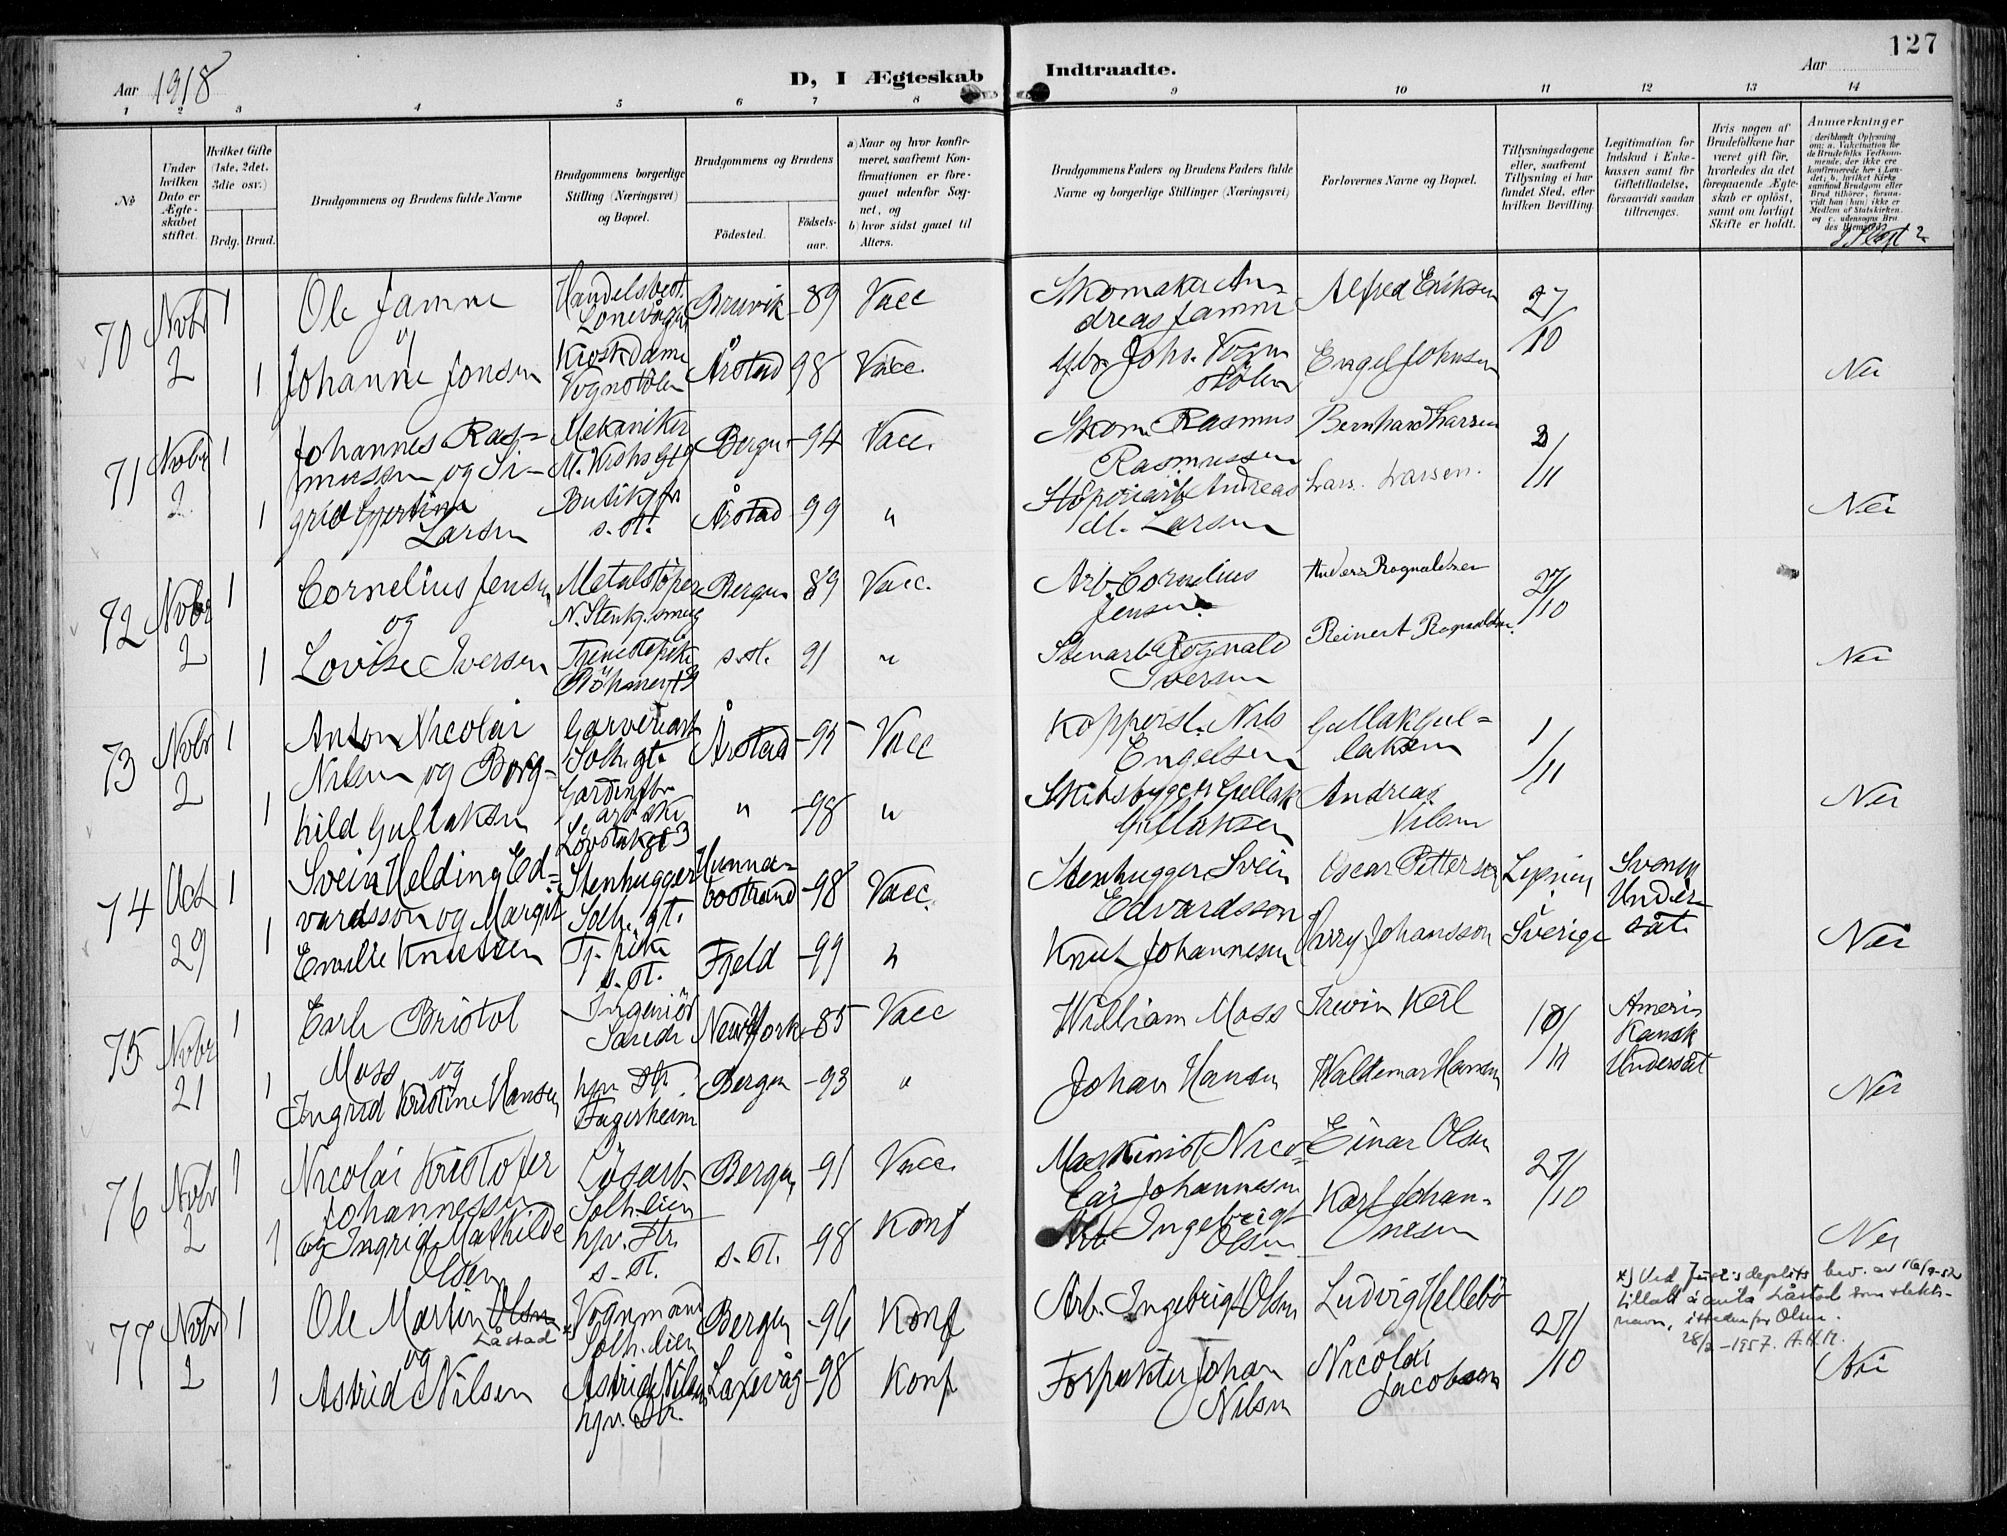 127
Aar 1918
D, I Ægteskab Indtraadte.
Aar
1 2 3 4 5 6 7 8 9 10 11 12 13 14
No
Under hvilken Dato er Ægteskabet stiftet.
Hvilket Gifte (1ste, 2det. 3die osv.)
Brdg. Brud.
Brudgommens og Brudens fulde Navne
Brudgommens borgerlige Stilling (Næringsvei) og Bopæl.
Brudgommens og Brudens
Fødested.
Fødselsaar.
a) Naar og hvor konfirmeret, saafremt Konfirmationen er foregaaet udenfor Sognet, og
b) hvor sidst gaaet til Alters.
Brudgommens Faders og Brudens Faders fulde Navne og borgerlige Stillinger (Næringsvei)
Forlovernes Navne og Bopæl.
Tillysningsdagene eller, saafremt Tillysning ei har fundet Sted, efter hvilken Bevilling.
Legitimation for Indskud i Enkekassen samt for Giftetilladelse, forsaavidt saadan tiltrænges.
Hvis nogen af Brudefolkene har været gift før, hvorledes da det foregaaende Ægteskab er opløst, samt om lovligt Skifte er holdt.
Anmærkninger
70 Novbr 2 1 Ole Jamne Handelsbest. Lonevåg Bruvik 89 Vacc Skomaker Andreas Jamne Alfred Eriksen 27/10
og
1 Johanne Jonsen Kioskdame Vognstølen Årstad 98 Vacc. Johs. Vognstølen Engel Johnsen Nei
71 Novbr 2 1 Johannes Rasmussen og Sigrid Mekaniker Bergen 94 Vacc. Skom. Rasmus Rasmussen Bernhard Larsen 3/11
1 Larsen s. st. Årstad 99 " Andreas M. Larsen Lars Larsen. Nei
72 Novbr 2 1 Cornelius Jensen Metalstöper Bergen 89 Vacc. Arb. Cornelius Jensen Anders Rognaldsen 27/10
og
1 Lovise Iversen Tjenestepike s. st. 91 " Stenarb. Rognald Iversen Reinert Rognaldsen. Nei
73 Novbr 2 1 Anton Nicolai Nilsen og Borghild Gullaksen Garveriarb Solh. gt. Årstad 95 Vacc Koppersl. Nils Engelsen Gullak Gullaksen 1/11
1 " 98 " Skibsbygger Gullak Gullaksen Andreas Nilsen Nei
74 Oct 29 1 Svein Helding Edvardsson og Margit Emilie Knutsen Stenhugger Solh. gt. Hunnebostrand 98 Vacc. Stenhugger Svein Edvardsson Oscar Petterson Lysning Sverige Svensk Undersåt.
1 Tj. pike s. st. Fjeld 99 " Knut Johannesen Harry Johansson Nei
75 Novbr 21 1 Earle Bristol Moss og Ingeniör New York 85 Vacc William Moss Irwin Keil 10/11 Amerikansk Undersåt
1 Ingrid Kristine Hansen hjv. Str. Fagerheim Bergen 93 " Johan Hansen Waldemar Hansen Nei
76 Novbr 2 1 Nicolai Kristofer Johannessen Lösarb Solh.lien Bergen 91 Vacc. Maskinist Nicolai Johannesen Einar Olsen 27/10
1 og Ingrid Mathilde Olsen hjv. Str. s. st. s. st. 98 Konf Arb. Ingebrigt Olsen Karl Johannesen Nei
77 Novbr 2 1 Ole Martin Olsen Låstad *) Vognmand Solh.lien Bergen 96 Konf Arb. Ingebrigt Olsen Ludvig Hellebö 27/10
og
1 Astrid Nilsen Astrid Nilsen hjv. Str. Laxevåg 98 Konf Forpakter Johan Nilsen Nicolai Jacobsen Nei
*) Ved Just.s deptets bev. av 16/9-52 tillatt å anta Låstad som slektsnavn, istedenfor Olsen.
28/2-1957. A.H.M.